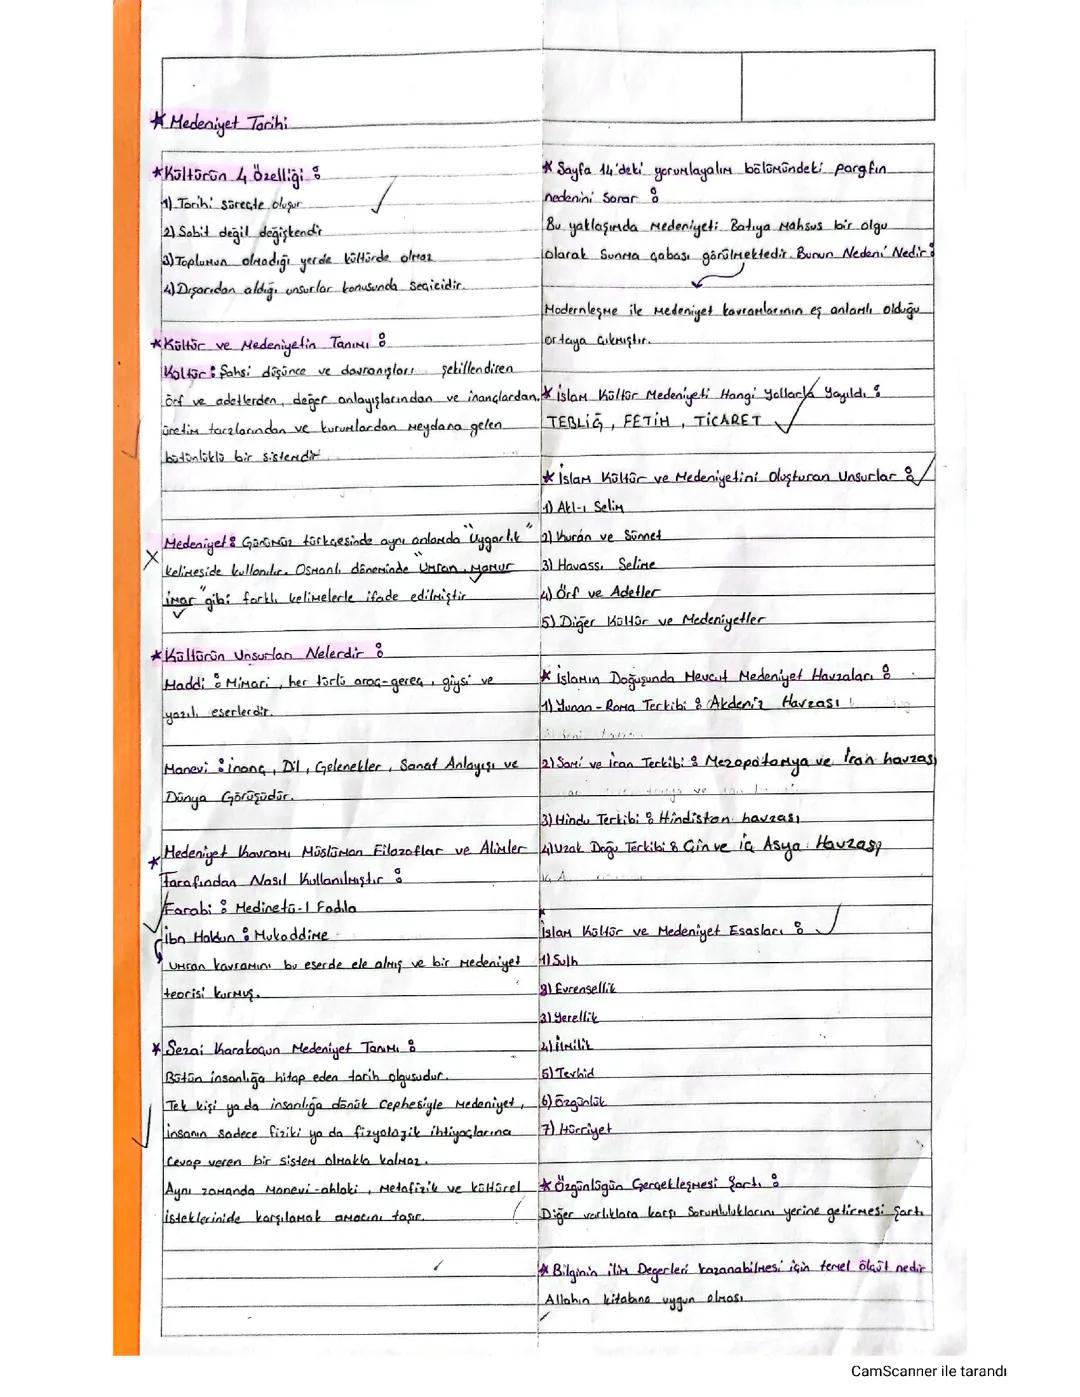 * Medeniyet Tarihi
* Kültürün 4 Özelliği :
1) Tarihi süreçte oluşur
2) Sabit değil değişkendir
3) Toplumun olmadığı yerde kültürde olmaz
4) Dışarıdan aldığı unsurlar konusunda seçicidir.
* Kültür ve Medeniyetin Tanımı :
Kültür : Şahsi düşünce ve davranışları şekillendiren
örf ve adetlerden, değer anlayışlarından ve inançlardan,
üretim tarzlarından ve kurumlardan meydana gelen
bütünlüklü bir sistemdir.
Medeniyet : Günümüz türkçesinde aynı anlamda "Uygarlık"
kelimeside kullanılır. Osmanlı döneminde "Umran, Mamur
imar" gibi farklı kelimelerle ifade edilmiştir
* Kültürün Unsurları Nelerdir :
Maddi : Mimari, her türlü araç-gereç, giysi ve
yazılı eserlerdir.
Manevi : inanç, Dil, Gelenekler, Sanat Anlayışı ve
Dünya Görüşüdür.
* Medeniyet Kavramı Müslüman Filozoflar ve Alimler
Tarafından Nasıl Kullanılmıştır :
Farabi : Medinetü-l Fadıla
ibn Haldun : Mukaddime
umran kavramını bu eserde ele almış ve bir medeniyet
teorisi kurmuş.
* Sezai Karakoçun Medeniyet Tanımı :
Bütün insanlığa hitap eden tarih olgusudur.
Tek kişi ya da insanlığa dönük cephesiyle Medeniyet,
insanın sadece fiziki ya da fizyolojik ihtiyaçlarına
cevap veren bir sistem olmakla kalmaz.
Aynı zamanda Manevi-ahlaki, Metafizik ve kültürel
isteklerinide karşılamak amacını taşır.
* Sayfa 14'deki yorumlayalım bölümündeki pargfın
nedenini Sorar :
Bu yaklaşımda medeniyeti Batıya Mahsus bir olgu
olarak Sunma çabası görülmektedir. Bunun Nedeni Nedir :
Modernleşme ile medeniyet kavramlarının eş anlamlı olduğu
ortaya çıkmıştır.
* İslam Kültür Medeniyeti Hangi Yollarla Yayıldı :
TEBLİĞ, FETİH, TİCARET
* İslam Kültür ve Medeniyetini Oluşturan Unsurlar :
1) Akl-ı Selim
2) Kurân ve Sünnet
3) Havassı Selime
4) Örf ve Adetler
5) Diğer Kültür ve Medeniyetler
* İslamın Doğuşunda Mevcut Medeniyet Havzaları :
1) Yunan-Roma Terkibi : Akdeniz Havzası
2) Sami ve İran Terkibi : Mezopotamya ve İran havzası
3) Hindu Terkibi : Hindistan havzası
4) Uzak Doğu Terkibi : Çin ve iç Asya Havzası
* İslam Kültür ve Medeniyet Esasları :
1) Sulh
2) Evrensellik
3) Yerellik
4) İlmilik
5) Tevhid
6) Özgünlük
7) Hürriyet
* Özgünlüğün Gerçekleşmesi Şartı :
Diğer varlıklara karşı Sorumluluklarını yerine getirmesi Şartı
* Bilginin ilim Değerleri kazanabilmesi için temel ölçüt nedir
Allahın kitabına uygun olması
CamScanner ile tarandı